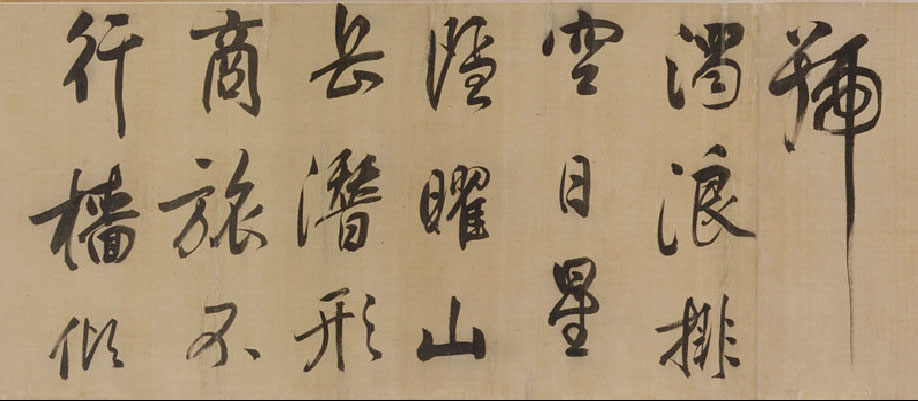 號
濁浪排
空日星
隱曜山
岳潛形
商旅不
行檣傾